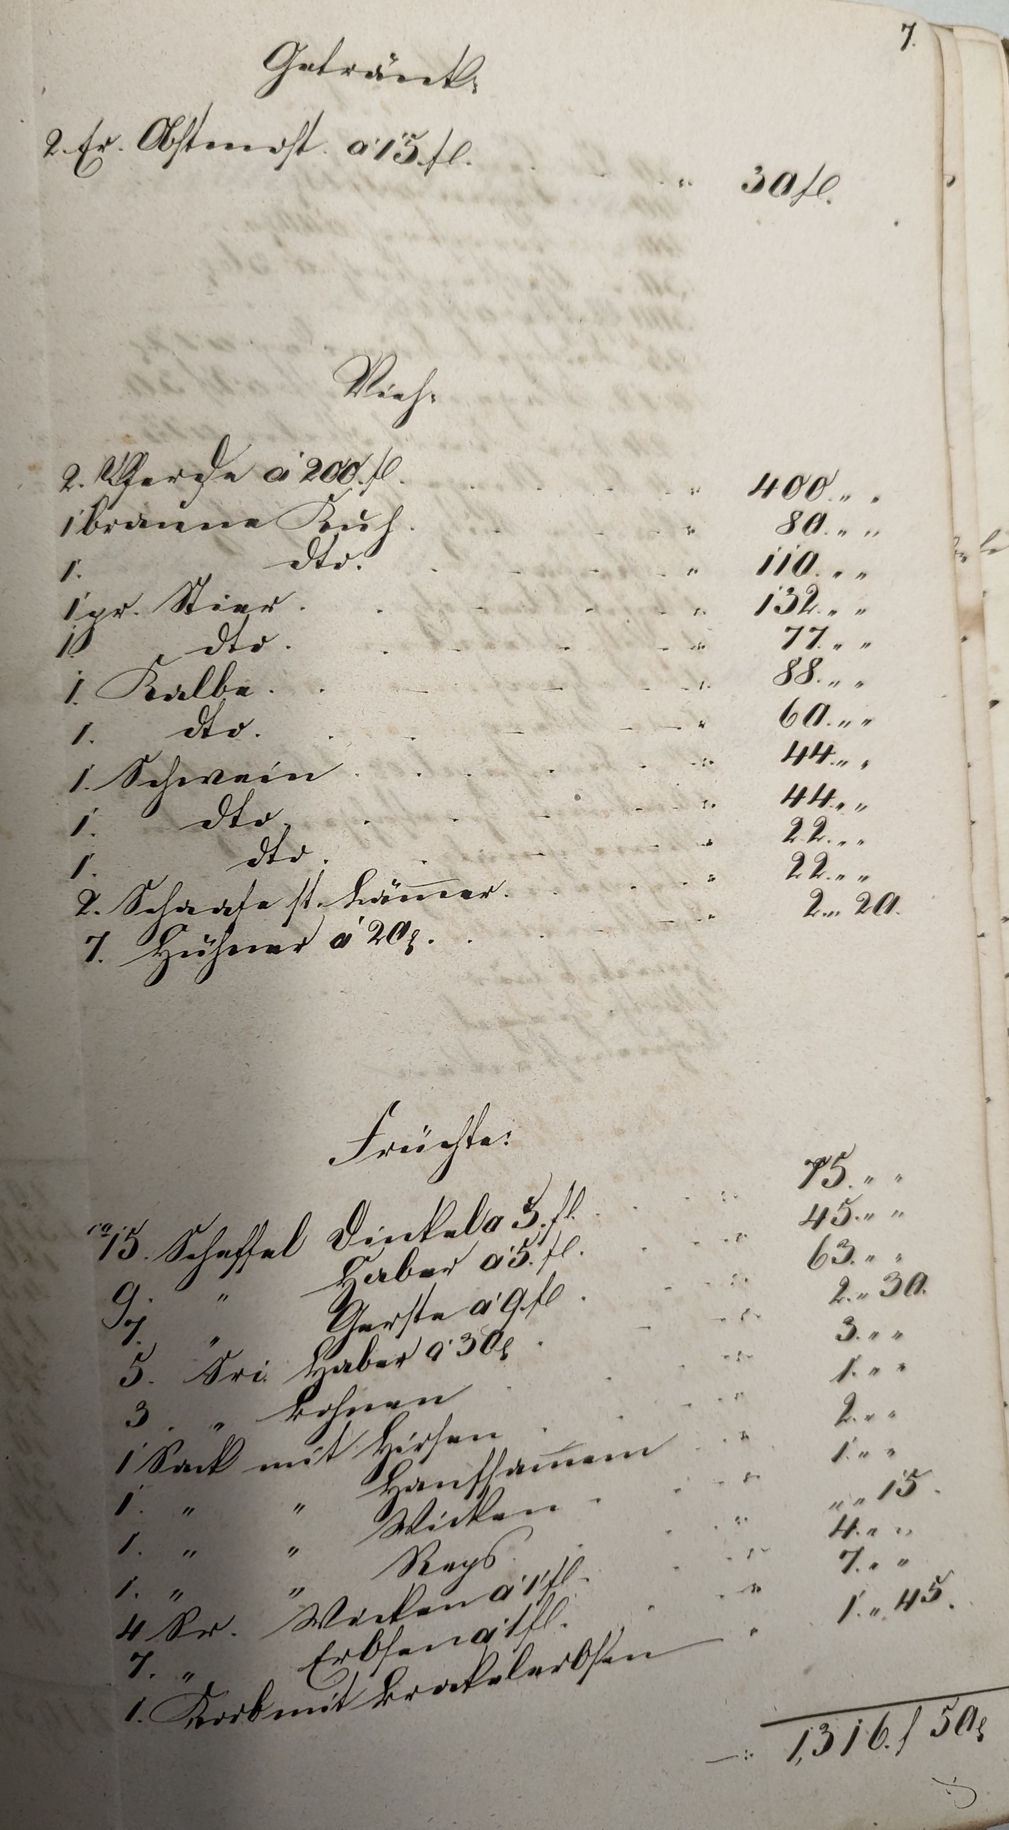 7.
Getränk:
2. Er. Obstmost. a 15 fl. . . . „ 30 fl.
Vieh:
2. Pferde á 200. fl. . . . „ 400. „ „
1 braune Kuh. . . . „ 80. „ „
1. dto. . . . „ 110. „ „
1 pr. Stier. . . . „ 132. „ „
1 dto. . . . „ 77. „ „
1. Kalbe. . . . „ 88. „ „
1. dto. . . . „ 60. „ „
1. Schwein . . . „ 44. „ „
1. dto. . . . „ 44. „ „
1. dto. . . . „ 22. „ „
2. Schaafe st. Läm̅er. . . . „ 22. „ „
7. Hühner á 20 . . . „ 2. „ 20.
Früchte:
15. Scheffel Dinkel a 5. fl. . . . „ 75. „ „
9. „ Haber a 5. fl. . . . „ 45. „ „
7. „ Gerste a 9. fl. . . . „ 63. „ „
5. Sri. Haber a 30 . . . „ 2. „ 30.
3. „ Bohnen . . . „ 3. „ „
1 Sack mit Hirsen . . . „ 1. „ „
1. „ „ Hanfsam̅em . . . „ 2. „ „
1. „ „ Wicken . . . „ 1. „ „
1. „ „ Reps . . . „ „ „ 15.
4 Sr. Wicken a 1 fl. . . . „ 4. „ „
7. „ Erbsen a 1 fl. . . . „ 7. „ „
1. Korb mit Brokelerbsen „ 1. „ 45.
1,316. f 50